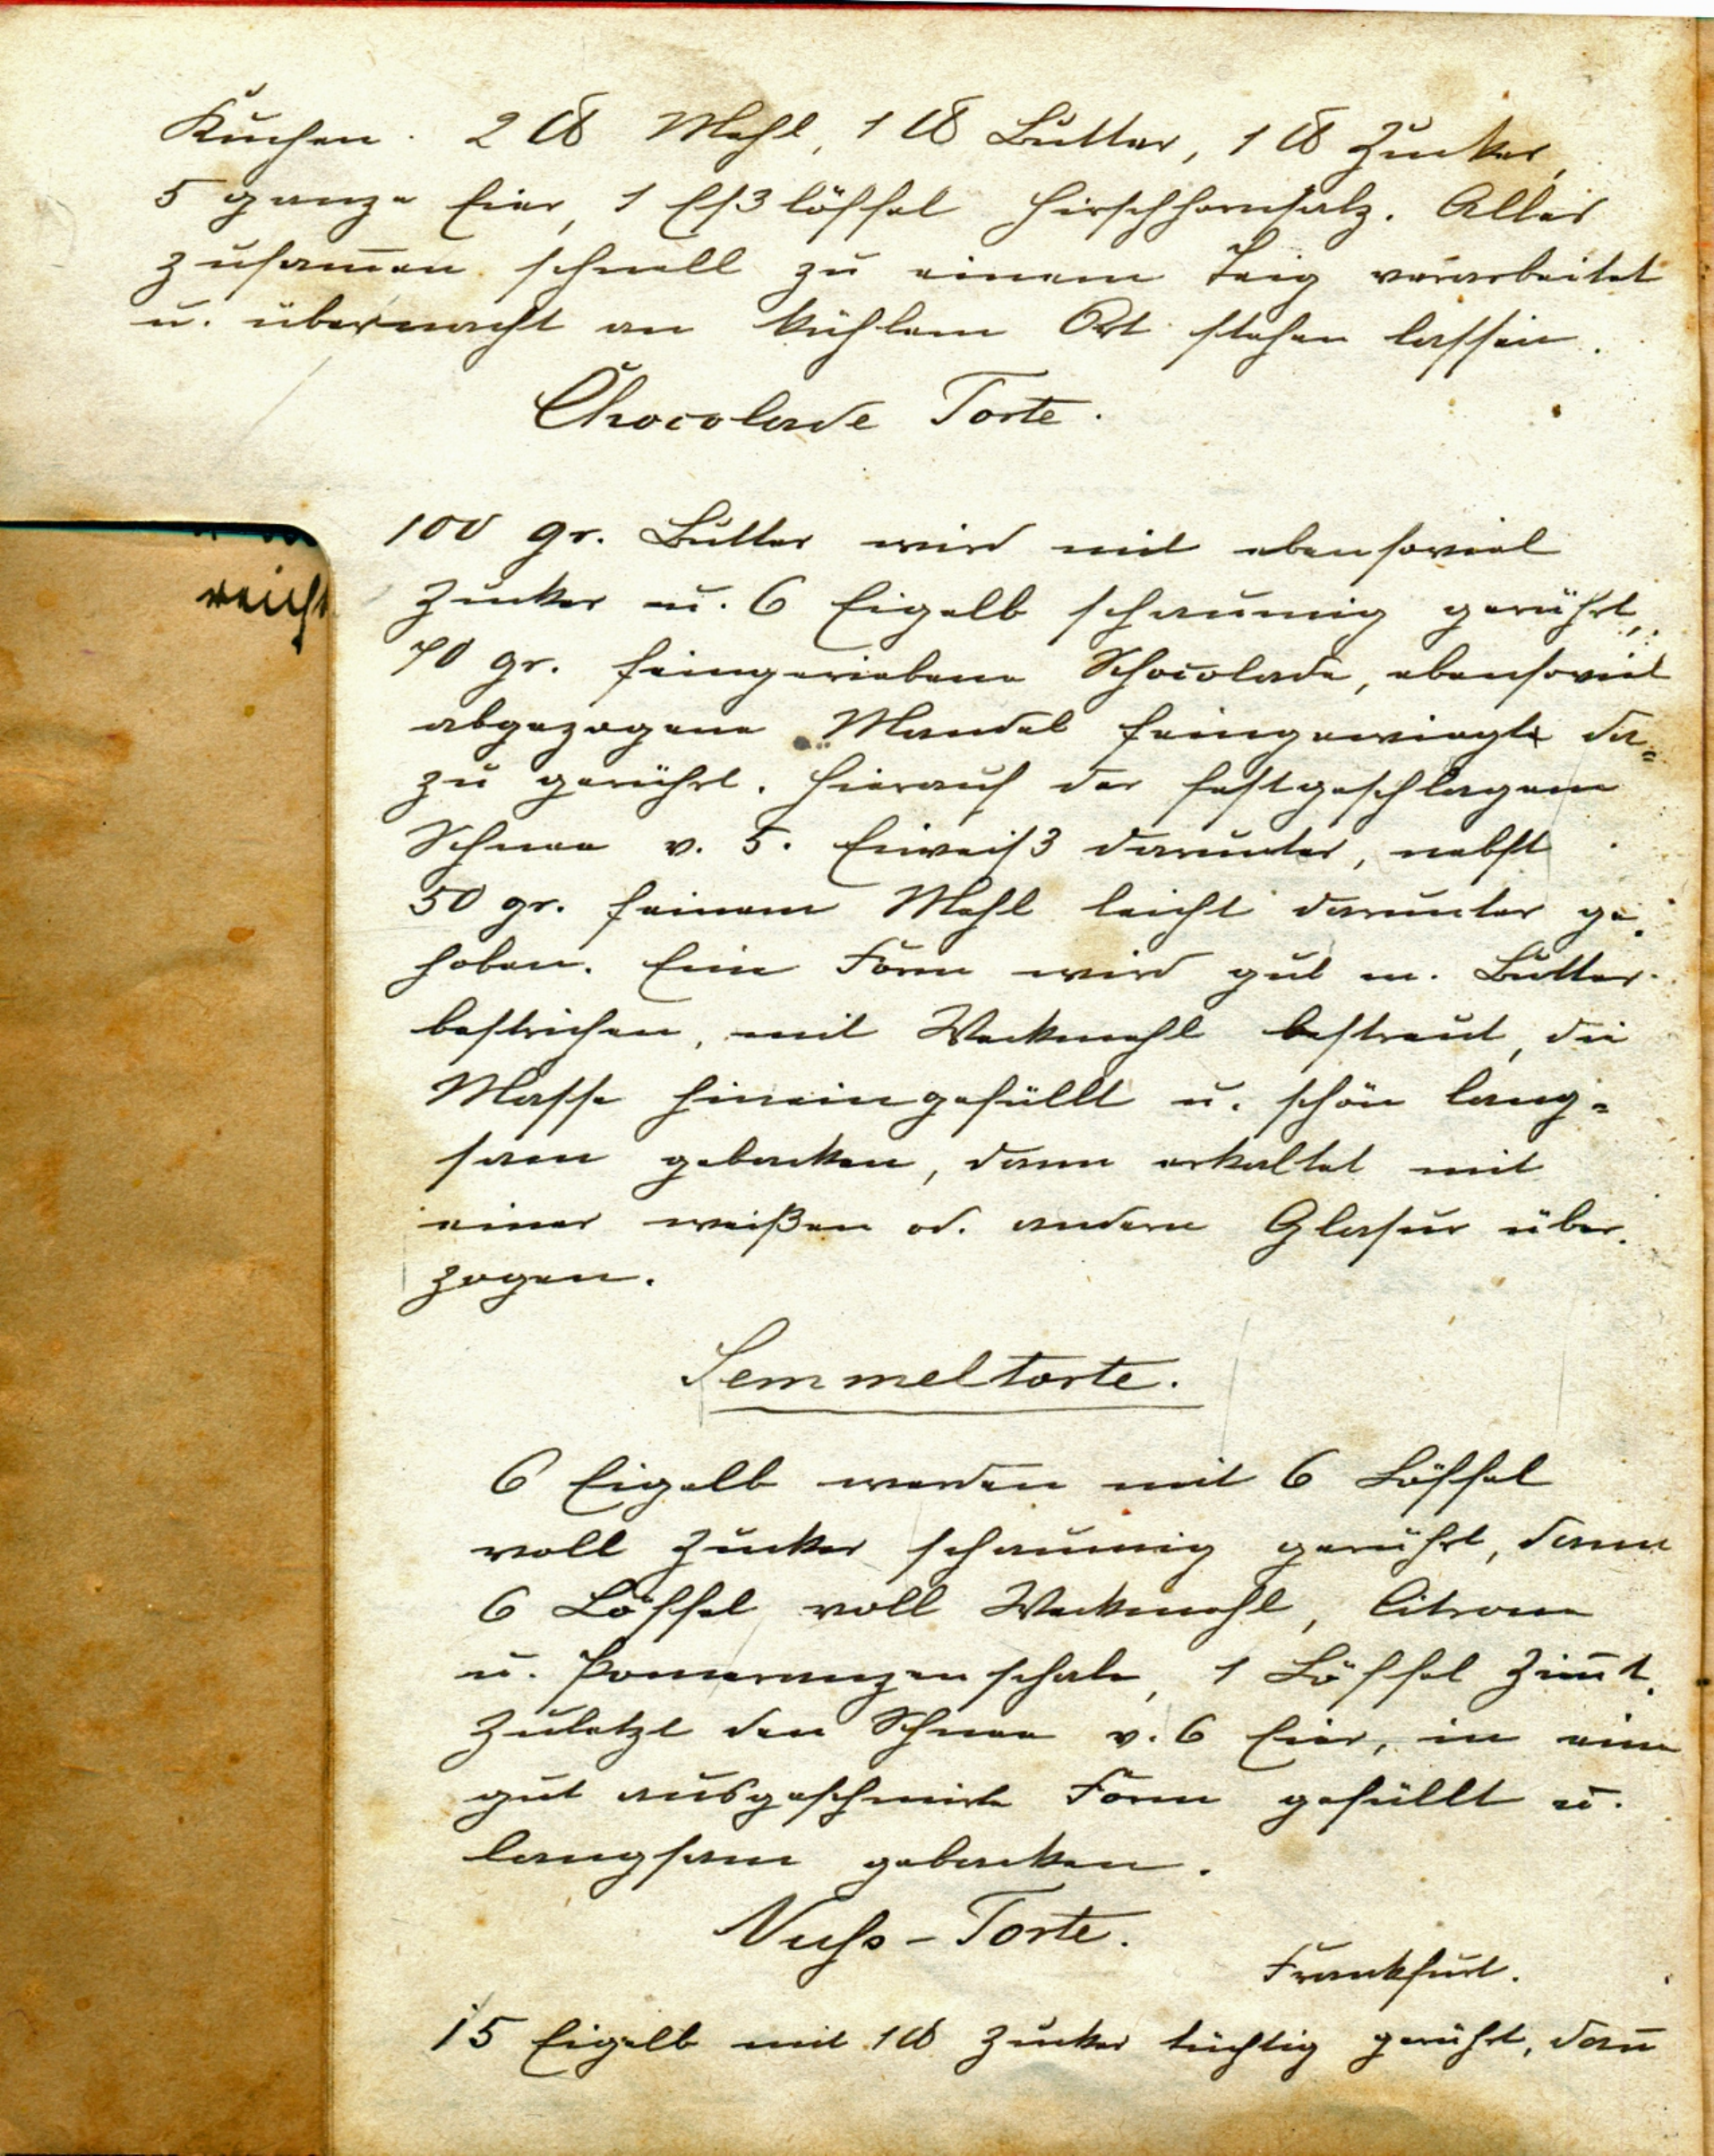 Kuchen. 2 ℔ Mehl, 1 ℔ Butter, 1 ℔ Zucker,
5 ganze Eier, 1 Eßlöffel Hirschhornsalz. Alles
zusam̄en schnell zu einem Teig verarbeitet
u. übernacht an kühlem Ort stehen lassen.
Chocolade Torte.
100 gr. Butter wird mit ebensoviel
reicht
Zucker u. 6 Eigelb schaumig gerührt,
70 gr. feingeriebene Schocolade, ebensoviel
abgezogene Mandel feingewiegte da=
zu gerührt. Hierauf der festgeschlagene
Schnee v. 5. Eiweiß darunter, nebst
50 gr. feinem Mehl leicht darunter ge-
hoben. Eine Form wird gut m. Butter
bestrichen, mit Weckmehl bestreut, die
Masse hineingefüllt u. schön lang=
sam gebacken, dann erkaltet mit
einer weißen od. andern Glasur über-
zogen.
Semmeltorte.
6 Eigelb werden mit 6 Löffel
voll Zucker schaumig gerührt, dann
6 Löffel voll Weckmehl, Citrone
u. Pomeranzenschale, 1 Löffel Zim̄t.
Zuletzt den Schnee v. 6 Eier, in eine
gut ausgeschmirte Form gefüllt u.
langsam gebacken.
Nuss-Torte.
Frankfurt.
15 Eigelb mit 1 ℔ Zucker tüchtig gerührt, dan̄